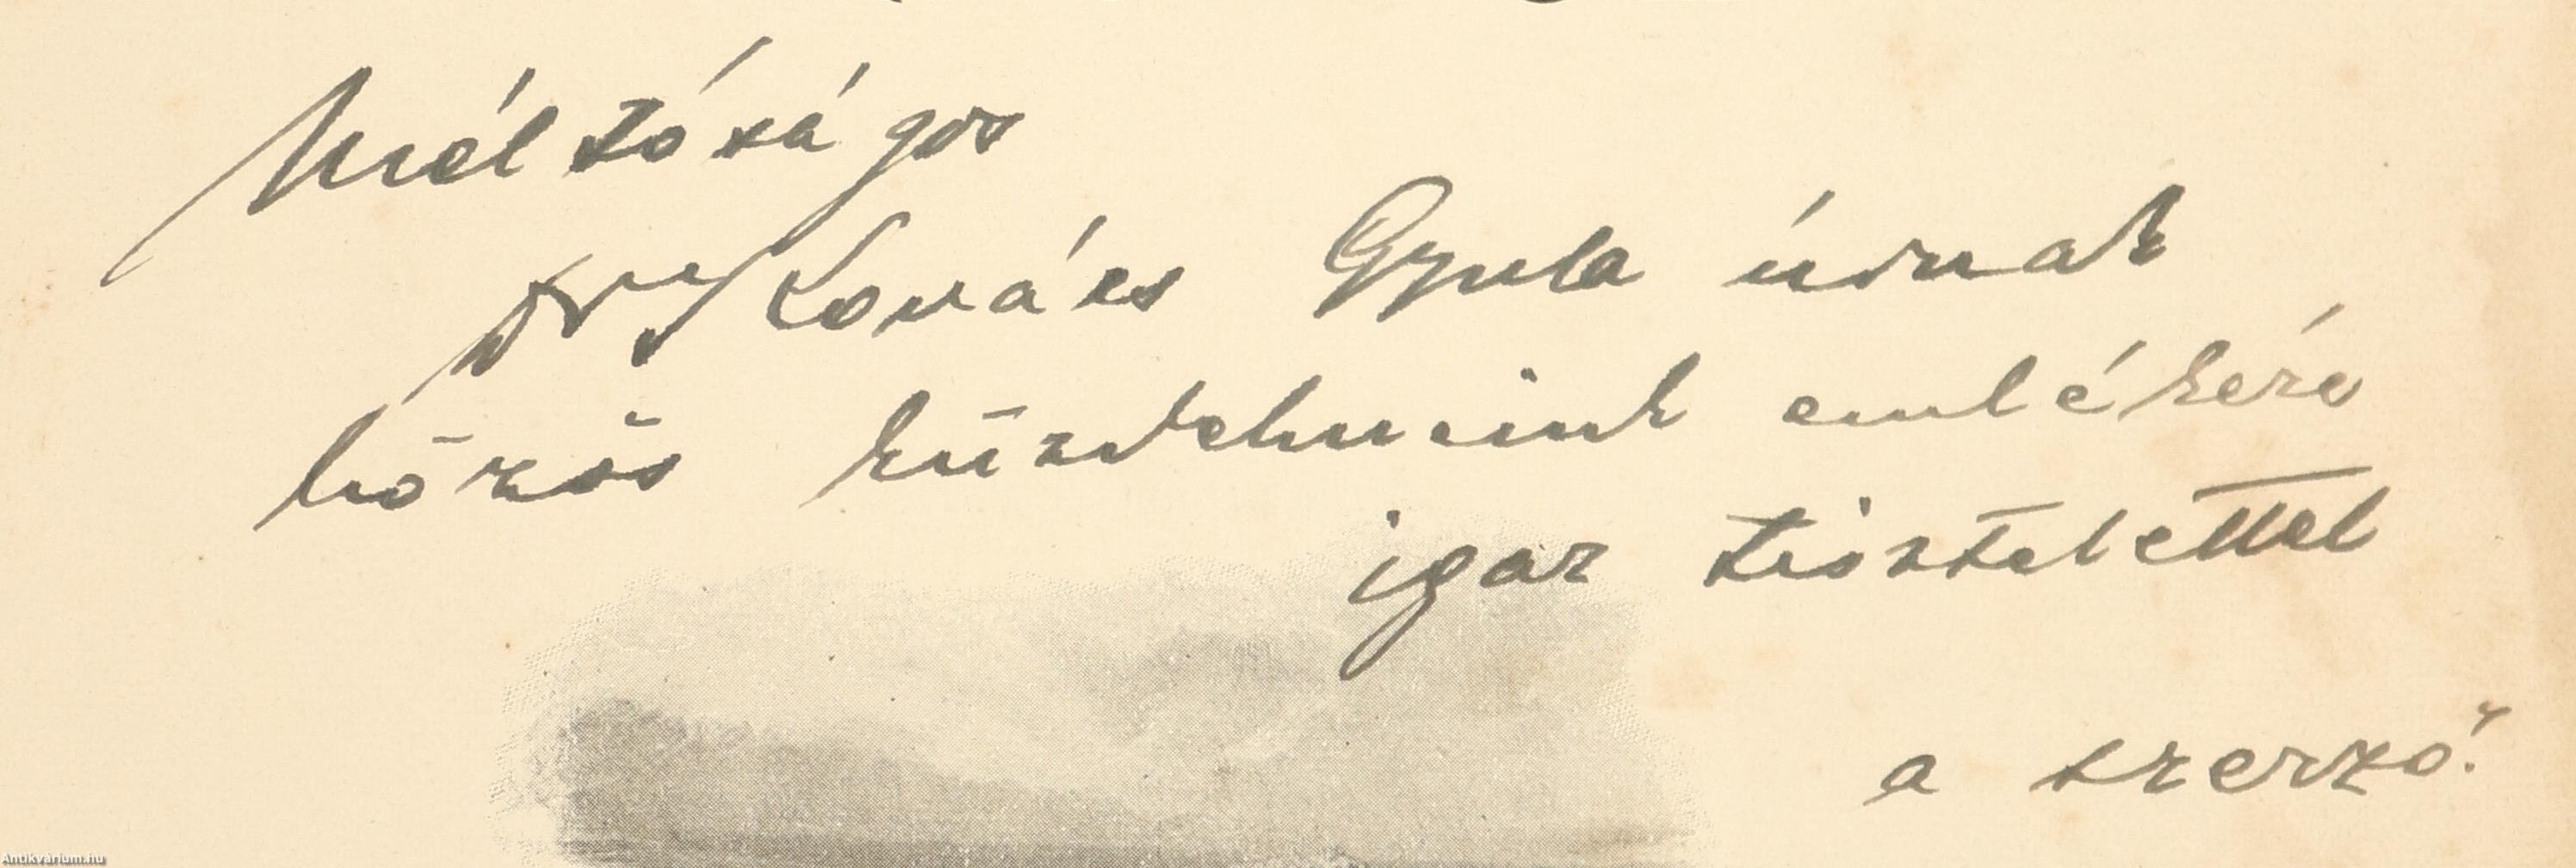 Méltóságos
Dr Kovács Gyula úrnak
közös küzdelmeink emlékére
igaz tisztelettel
a szerző.
Antikvárium.hu